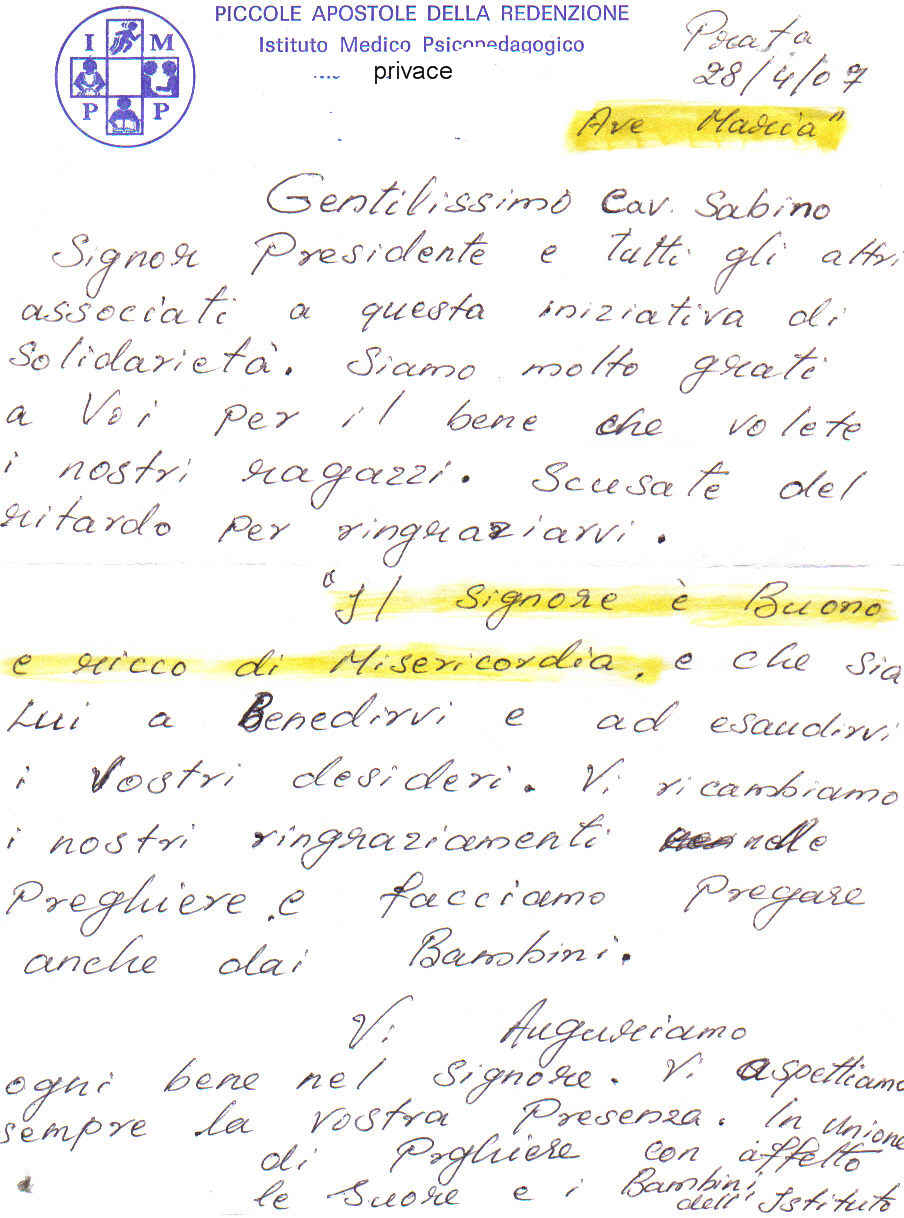 PICCOLE APOSTOLE DELLA REDENZIONE
Istituto Medico Psicopedagogico
privace
I M
P P
Prata
28/4/07
Ave Maria"
Gentilissimo Cav. Sabino
Signor Presidente e tutti gli altri
associati a questa iniziativa di
solidarietà. Siamo molto grati
a Voi per il bene che volete
i nostri ragazzi. Scusate del
ritardo per ringraziarvi.
"Il Signore è Buono
e ricco di Misericordia, e che sia
Lui a Benedirvi e ad esaudirvi
i Vostri desideri. Vi ricambiamo
i nostri ringraziamenti nelle
Preghiere, e facciamo Pregare
anche dai Bambini.
Vi Auguriamo
ogni bene nel Signore. Vi aspettiamo
sempre la Vostra Presenza. In unione
di Prghiere con affetto
le Suore e i Bambini
dell'Istituto